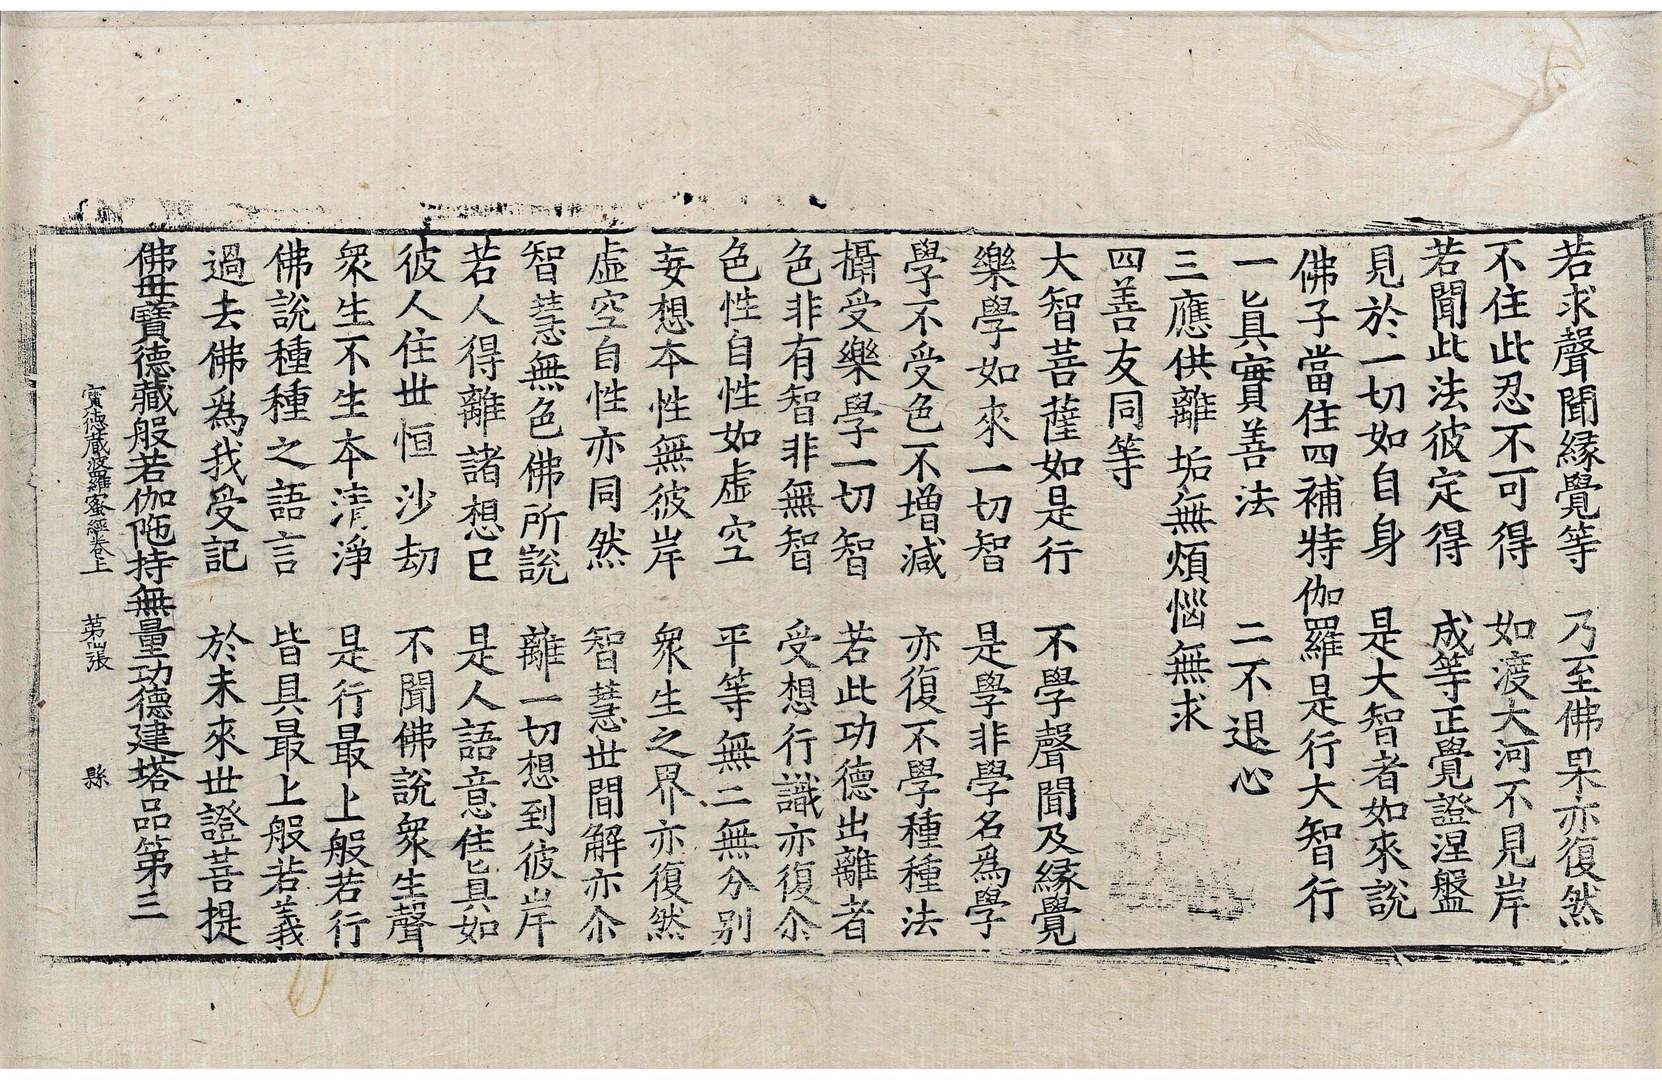 若求聲聞縁覺等　乃至佛果亦復然
不住此忍不可得　如渡大河不見岸
若聞此法彼定得　成等正覺證涅盤
見於一切如自身　是大智者如來說
佛子當住四補特伽羅是行大智行
一㠯真實善法　二不退心
三應供離垢無煩惱無求
四善友同等
大智菩薩如是行　不學聲聞及縁覺
樂學如來一切智　是學非學名為學
學不受色不增減　亦復不學種種法
攝受樂學一切智　若此功德出離者
色非有智非無智　受想行識亦復尒
色性自性如虛空　平等無二無分別
妄想本性無彼岸　衆生之界亦復然
虛空自性亦同然　智慧世間解亦尒
智慧無色佛所說　離一切想到彼岸
若人得離諸想已　是人語意住㠯真如
彼人住世恒沙劫　不聞佛說衆生聲
衆生不生本清淨　是行最上般若行
佛說種種之語言　皆具最上般若義
過去佛為我受記　於未來世證菩提
佛母寶德藏般若伽陁持無量功德建塔品第三
寶德藏波羅蜜經卷上　第四張　縣